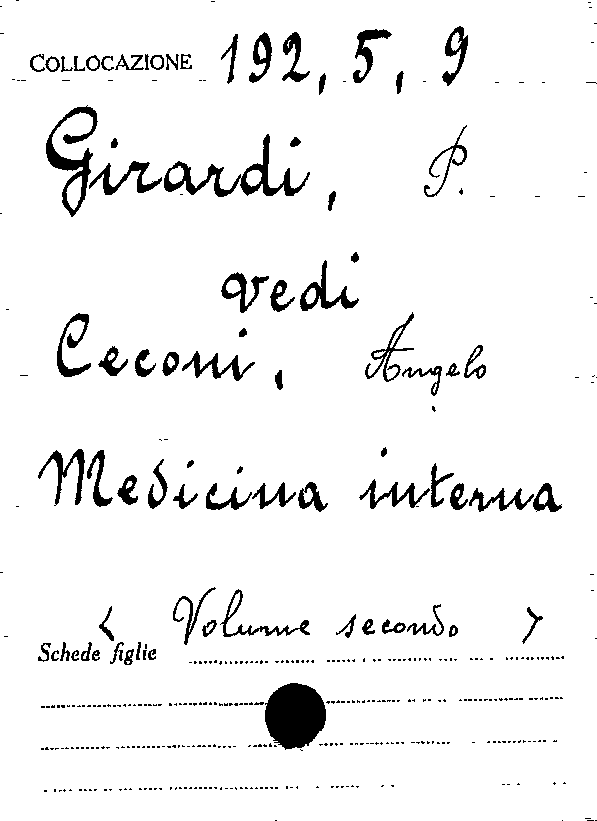 COLLOCAZIONE 192, 5, 9
Girardi, P.
vedi
Ceconi, Angelo
Medicina interna
< Volume secondo >
Schede figlie